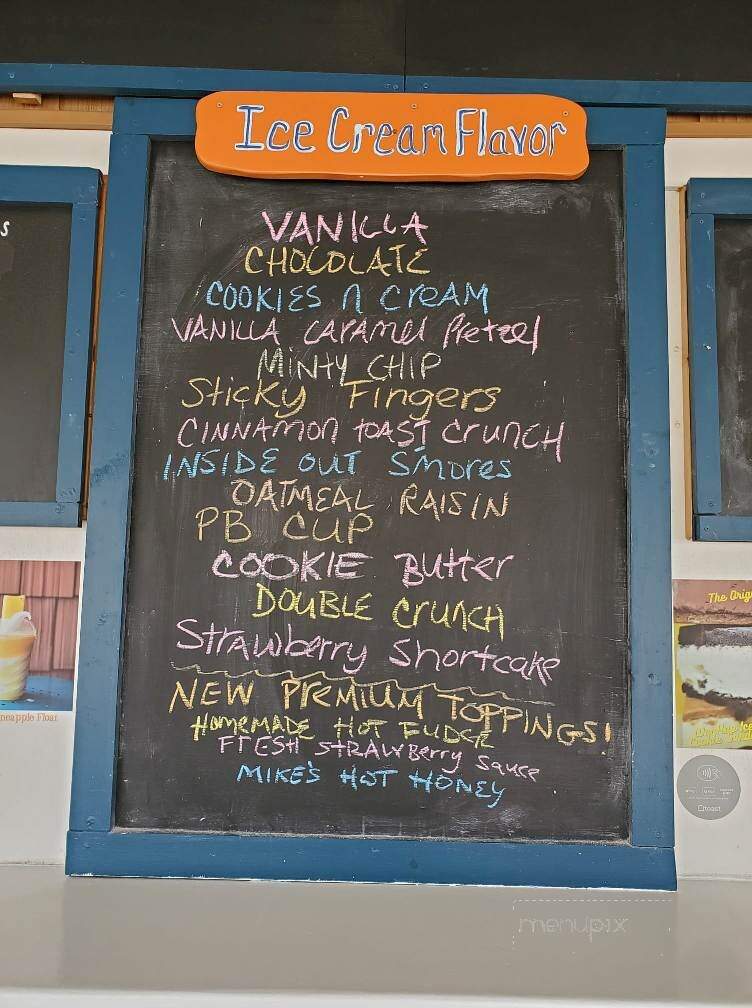 Ice Cream Flavor
s
VANILLA
CHOCOLATE
COOKIES n CreAM
VANILLA CArAmel Pretzel
MINTY CHIP
Sticky Fingers
CINNAmon toAST CrunCH
INSIDE out Smores
OATMEAL RAISIN
PB CUP
COOKIE Butter
DOUBLE CrunCH
Strawberry Shortcake
NEW PreMIUM TOPPINGS!
HOMEMADE HOT FUDGE
FrESH STRAWBerry Sauce
MIKE'S HOT HONEY
neapple Float
The Orig
toast
menupix